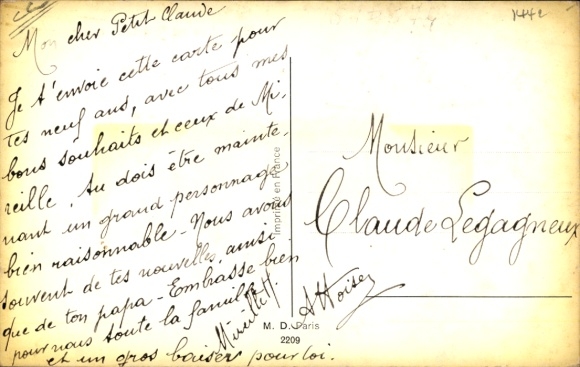 Mon cher Petit Claude
Je t'envoie cette carte pour
tes neuf ans, avec tous mes
bons souhaits et ceux de Mi-
reille. Tu dois être mainte-
nant un grand personnage
bien raisonnable - Nous avons
souvent de tes nouvelles, ainsi
que de ton papa - Embrasse bien
pour nous toute la famille
et un gros baiser pour toi.
Mireille H.
Imprimé en France
M. D. Paris
2209
Monsieur
Claude Legagneux